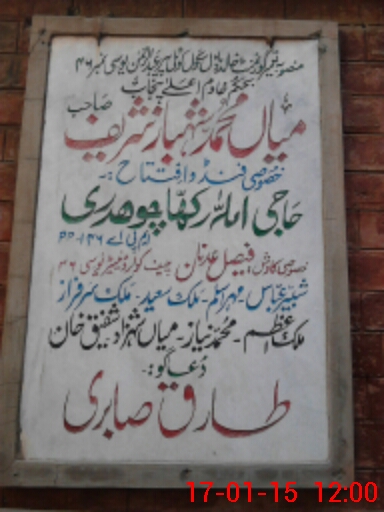 منصوبہ تعمیر گورنمنٹ خالد ماڈل سکول کوٹلی میر عبدالرحمن یوسی نمبر ۴۶
بحکم خادم اعلیٰ پنجاب
میاں محمد شہباز شریف صاحب
خصوصی فنڈ و افتتاح :۔
حاجی اللہ رکھا چوھدری
ایم پی اے PP-۱۴۶
خصوصی کاوش: فیصل عدنان چیف کوآرڈینیٹر یوسی ۴۶
شبیر عباس - مہر اسلم - ملک سعید - ملک سرفراز
ملک اعظم - محمد نیاز - میاں شہزاد شفیق خان
دُعا گو :۔
طارق صابری
17-01-15 12:00